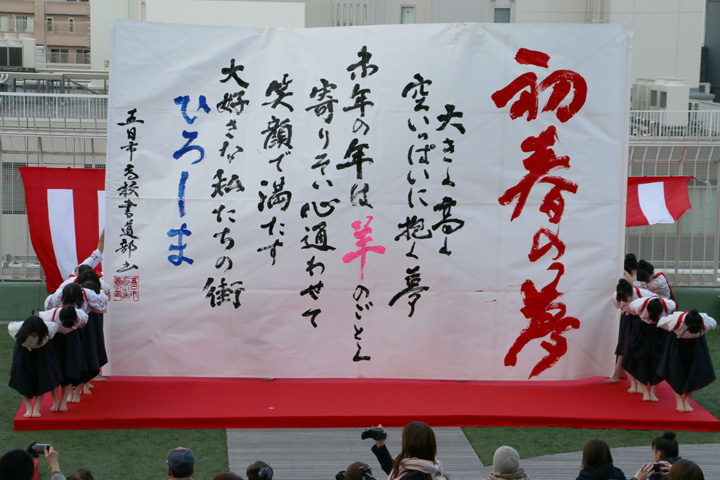 初春の夢
大きく高く
空いっぱいに抱く夢
未年の年は羊のごとく
寄りそい心通わせて
笑顔で満たす
大好きな私たちの街
ひろしま
五日市高校書道部